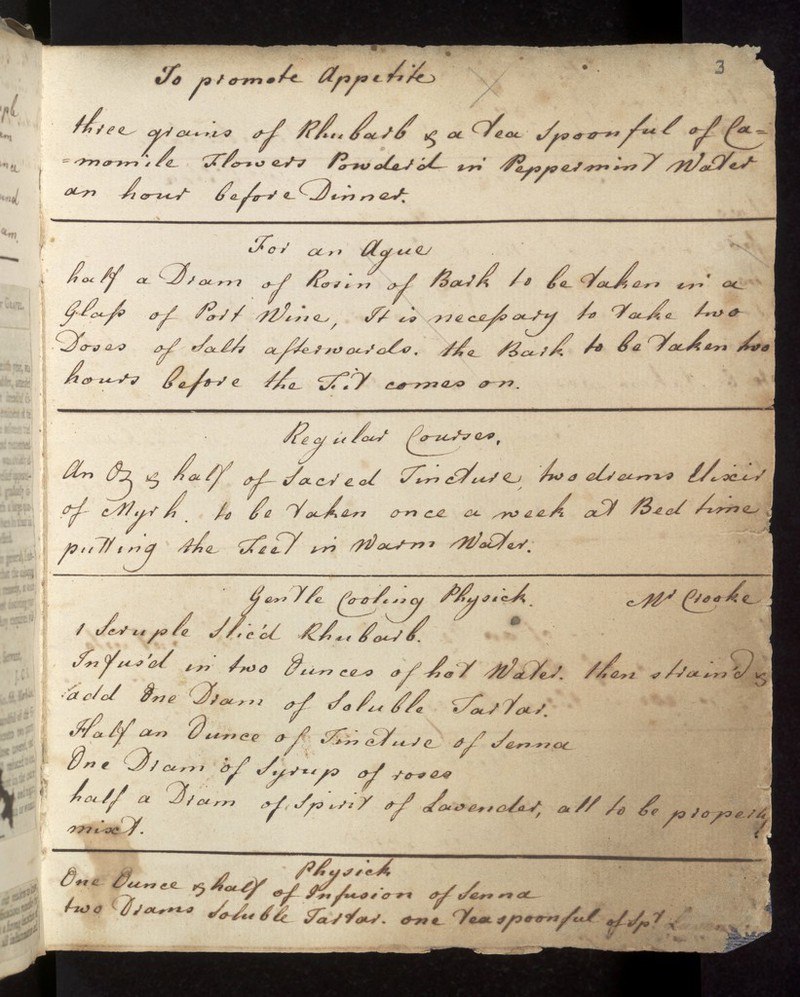 3
To promote Appetite
three grains of Rhubarb & a Tea Spoonful of Ca=
=momile Flowers Powder'd in Peppermint Water
an hour before Dinner.
For an Ague
half a Dram of Rosin of Bark to be Taken in a
Glass of Port Wine, It is necessary to Take two
Doses of Salts afterwards. the Bark to be Taken two
hours before the Fit comes on.
Regular Courses.
An Oz & half of Sacred Tincture, two drams Elixir
of Myrh. to be Taken once a week at Bed time
putting the Feet in Warm Water.
Gentle Cooling Physick. Mr Crooke
1 Scruple Slic'd Rhubarb.
Infus'd in two Ounces of hot Water. then strain'd &
add One Dram of Soluble Tartar.
Half an Ounce of Tincture of Senna
One Dram of Syrup of roses
half a Dram of Spirit of Lavender, all to be properly
mixt.
Physick
One Ounce & half of Infusion of Senna
two Drams Soluble Tartar. one Teaspoonful of Spt